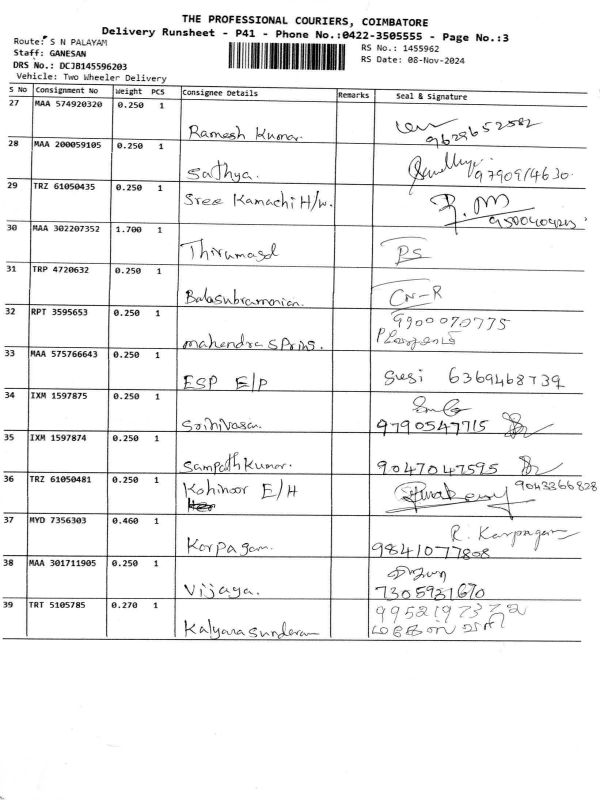 THE PROFESSIONAL COURIERS, COIMBATORE
Delivery Runsheet - P41 - Phone No.:0422-3505555 - Page No.:3
Route: S N PALAYAM
RS No.: 1455962
Staff: GANESAN
RS Date: 08-Nov-2024
DRS No.: DCJB145596203
Vehicle: Two Wheeler Delivery
S No Consignment No Weight PCS Consignee Details Remarks Seal & Signature
27 MAA 574920320 0.250 1
Ramesh Kumar. 9629652582
28 MAA 200059105 0.250 1
Sathya. 9790914630.
29 TRZ 61050435 0.250 1
Sree Kamachi H/w.
30 MAA 302207352 1.700 1
PS
31 TRP 4720632 0.250 1
Balasubramanian. CN-R
32 RPT 3595653 0.250 1
9900070775
mahendra S Prins.
33 MAA 575766643 0.250 1
ESP E/P Susi 6369468739
34 IXM 1597875 0.250 1
Srinivasan. 9790547715
35 IXM 1597874 0.250 1
Sampath Kumar. 9047047595
36 TRZ 61050481 0.250 1
Kohinoor E/H 9043366828
37 MYD 7356303 0.460 1
R. Karpagam
Karpagam. 9841077808
38 MAA 301711905 0.250 1
விஜயா
Vijaya. 7305931670
39 TRT 5105785 0.270 1
Kalyana Sundaram